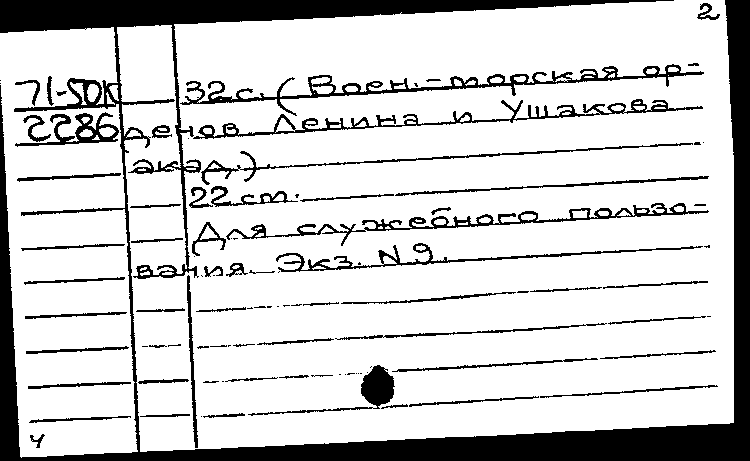 2
71-50К 32 с. (Воен.-морская ор-
2286 денов Ленина и Ушакова
акад.).
22 cm.
Для служебного пользо-
вания. Экз. N 9.
ч